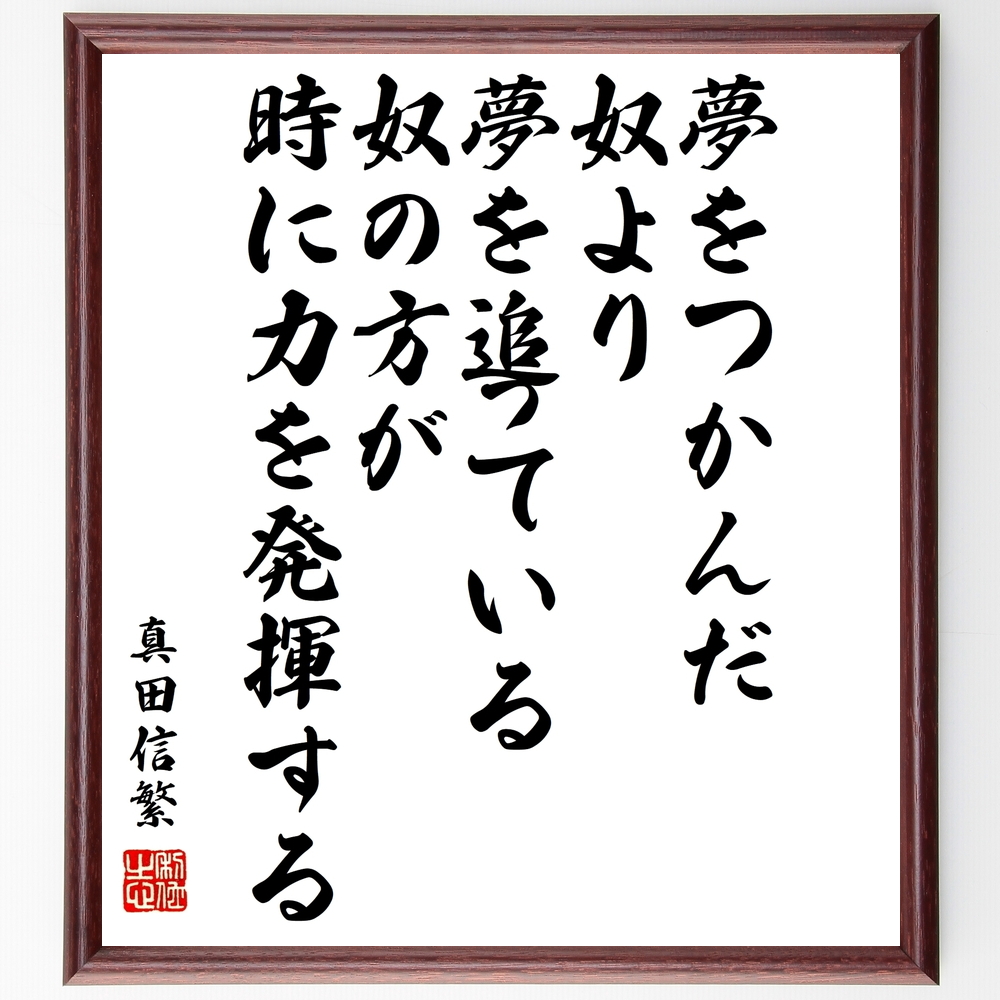 夢をつかんだ
奴より
夢を追っている
奴の方が
時に力を発揮する
真田信繁